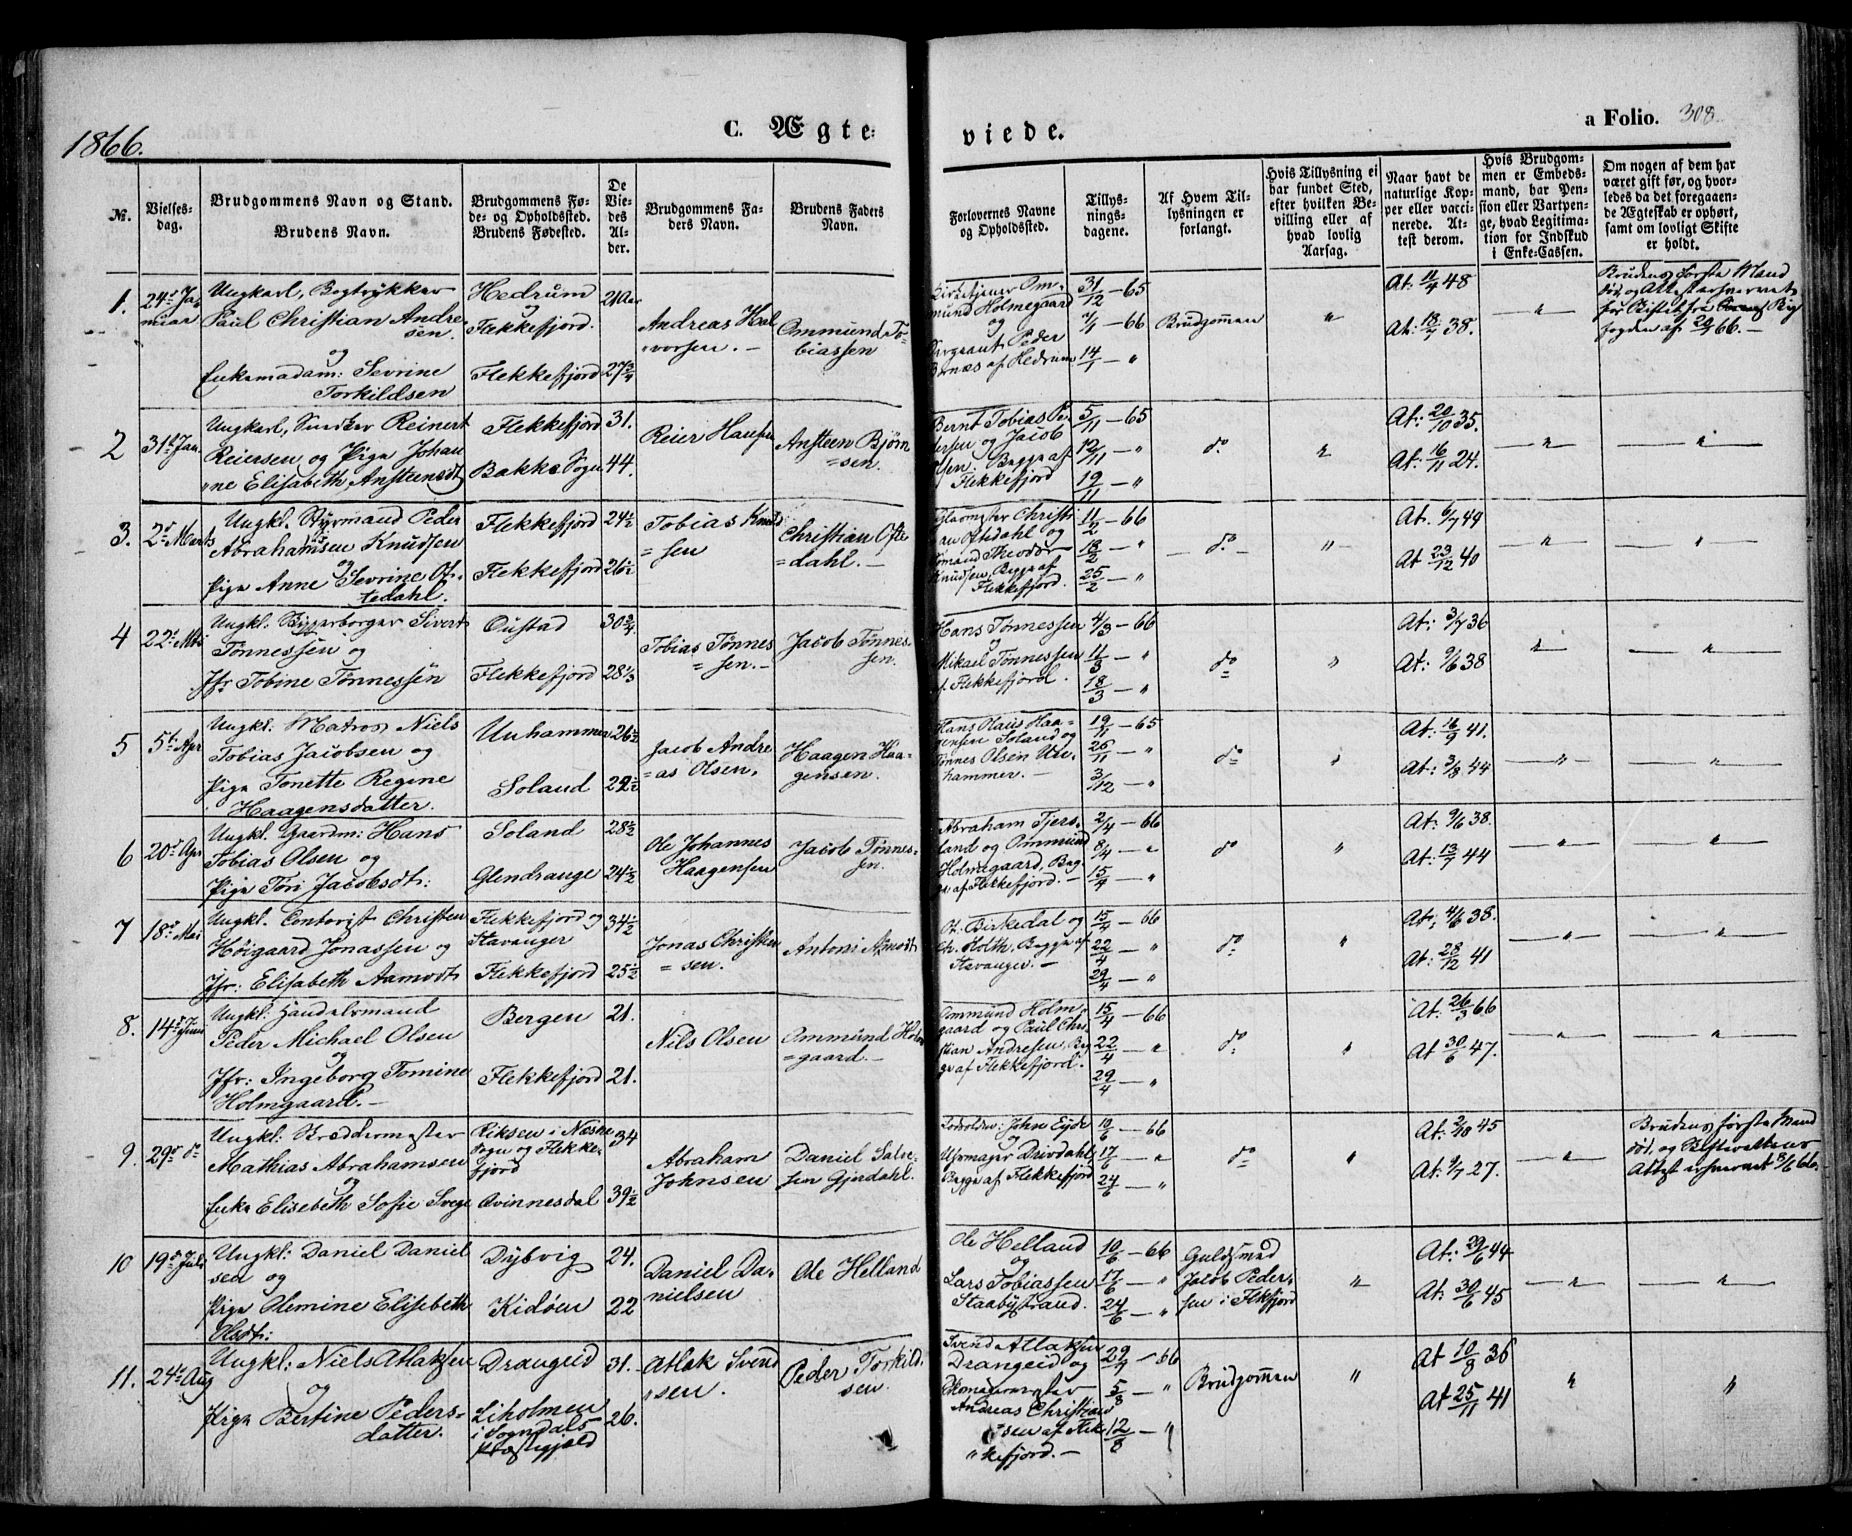 1866.
C. Ægte-
viede.
a Folio. 308
No.
Vielses-
dag.
Brudgommens Navn og Stand.
Brudens Navn.
Brudgommens Fø-
de- og Opholdssted.
Brudens Fødested.
De
Vie-
des
Al-
der.
Brudgommens Fa-
ders Navn.
Brudens Faders
Navn.
Forlovernes Navne
og Opholdssted.
Tillys-
nings-
dagene.
Af Hvem Til-
lysningen er
forlangt.
Hvis Tillysning ei
har fundet Sted,
efter hvilken Be-
villing eller af
hvad lovlig
Aarsag.
Naar havt de
naturlige Kop-
per eller vacci-
nerede. At-
test derom.
Hvis Brudgom-
men er Embeds-
mand, har Pen-
sion eller Vartpen-
ge, hvad Legitima-
tion for Indskud
i Enke-Cassen.
Om nogen af dem har
været gift før, og hvor-
ledes da det foregaaen-
de Ægteskab er ophørt,
samt om lovligt Skifte
er holdt.
1. 24de Ja-
nuar
Ungkarl, Bogtrykker
Paul Christian Andre-
sen.
og
Enkemadam: Sevrine
Torkildsen
Hedrum
og
Flekkefjord.
Flekkefjord
21 Aar
27 3/4
Andreas Hal-
vorsen. —
Ommund To-
biassen
mund Holmegaard
og
Sergeant Peder
af Hedrum
31/12 — 65
7/1 — 66
14/1 — "
Brudgommen
"
At: 11/4 48
At: 18/7 38.
— " —
Brudens første Mand
død, og Attest erhvervet
for Skiftet fra By-
fogden af 20/1 66. —
2 31te Jan.
Ungkarl, Snedker Reinert
Reiersen og Pige Johan
"ne Elisabeth Ansteensdt
Flekkefjord
Bakke Sogn
31.
44.
Reier Hansen
Ansteen Bjørn
=sen.
Bernt Tobias Pe-
dersen og Jacob
Olsen. Begge af
Flekkefjord
5/11 — 65
12/11 — "
19/11 — "
do.
"
At: 20/10 35.
At: 16/11 24.
— " —
— " —
3. 2den Marts
Ungkl. Styrmand Peder
Abrahamsen Knudsen
og
Pige Anne Sevrine Of-
tedahl.
Flekkefjord
Flekkefjord
24 1/2
26 1/2
Tobias Knud
=sen
Christian Ofte
=dahl. —
Christi
an Oftedahl og
Theodor
Knudsen, Begge af
Flekkefjord.
11/2 — 66
18/2 — "
25/2 — "
— do. —
"
At. 6/7 49
At 23/12 40
— " —
— " —
4 22de Mai
Ungkl: Sivert
Tønnessen og
Jfr Tobine Tønnessen
Oustad
Flekkefjord
30 3/4
28 1/3
Tobias Tønnes
=sen. —
Jacob Tønnes-
sen.
Hans Tønnessen
og
Mikael Tønnessen
af Flekkefjord.
4/3 — 66
11/3 — "
18/3 — "
do
"
At: 3/7 36
At: 9/6 38
— " —
— " —
5 5te Apr
Ungkl: Matros Niels
Tobias Jacobsen og
Pige Tonette Regine
Haagensdatter.
Unhammer
Soland
26 1/2
29 1/2
Jacob Andre
=as Olsen.
Haagen Haa-
gensen.
Hans Olaus Haa-
gensen Soland og
Tønnes Olsen Un-
hammer. —
19/11 — 65
26/11 — "
3/12 — "
do
"
At: 16/9 41.
At: 3/8 44
— " —
— " —
6 20de Apr
Ungkl. Gaardm: Hans
Tobias Olsen og
Pige Tori Jacobsdt:
Soland
Glendrange
28 1/2
24 1/2
Ole Johannes
Haagensen
Jacob Tønnes-
sen.
Abraham Tjers-
land og Ommund
Holmegaard, Beg-
ge af Flekkefjord. —
2/4 — 66
8/4 — "
15/4 — "
do
"
At: 9/6 38.
At: 13/7 44
— " —
— " —
7 18de Mai
Ungkl. Contorist Christen
Høigaard Jonassen og
Jfr: Elisabeth Aamodt
Flekkefjord og
Stavanger
Flekkefjord
34 1/2
25 1/2
Jonas Christen
=sen.
Antoni Amodt
Ot. Birkedal og
Ch. Holth, Begge af
Stavanger. —
15/4 — 66
22/4 — "
29/4 — "
do
"
At: 4/6 38.
At: 28/12 41
— " —
— " —
8. 14de Juni
Ungkl: Handelsmand
Peder Michael Olsen
og
Jfr: Ingeborg Tomine
Holmgaard. —
Bergen
Flekkefjord
21.
21.
Nils Olsen
Ommund Holm
=gaard. —
Ommund Holm-
gaard og Paul Chri-
stian Andresen, Beg
ge af Flekkefjord.
15/4 — 66
22/4 — "
29/4 — "
do.
"
At: 26/3 66
At 30/6 47.
— " —
— " —
9. 29de do
Ungkl: Skreddermester
Mathias Abrahamsen
og
Enke Elisebeth Sofie Svege
Riksen i Næsne
Sogn og Flekke-
fjord
Qvinnesdal
34
39 1/2
Abraham
Johnsen
Daniel Salve-
sen Gjerdahl.
John Eyde
og
Uhrmager Drivdahl
Begge af Flekkefjord
10/6 — 66
17/6 — "
24/6 — "
do
"
At: 2/10 45
At: 9/7 27.
— " —
Brudens første Mand
død, og Skifterettens
Attest erhvervet 8/6 66.
10 19de Juli
Ungkl: Daniel Daniel
sen og
Pige Olemine Elisebeth
Olsdt:
Dybvig
Kidøen
24.
22
Daniel Da-
nielsen
Ole Helland
Ole Helland
og
Lars Tobiassen
Staabystrand.
10/6 — 66
17/6 — "
24/6 — "
Guldsmed
Jacob Peder-
sen i Flekfjord
"
At: 29/6 44
At: 30/6 45
— " —
— " —
11. 24de Aug
Ungkl: Niels Atlaksen
og
Pige Bertine Peders-
datter.
Drangeid
Liholmen
i Sogndals
Præstegjæld
31.
26.
Atlak Svend
"sen.
Peder Torkild-
sen.
Svend Atlaksen
Drangeid og
Andreas Christian
sen af Flek
"kefjord. —
29/7 — 66
5/8 — "
12/8 — "
Brudgommen
"
At 10/8 36
At 25/11 41
"
"